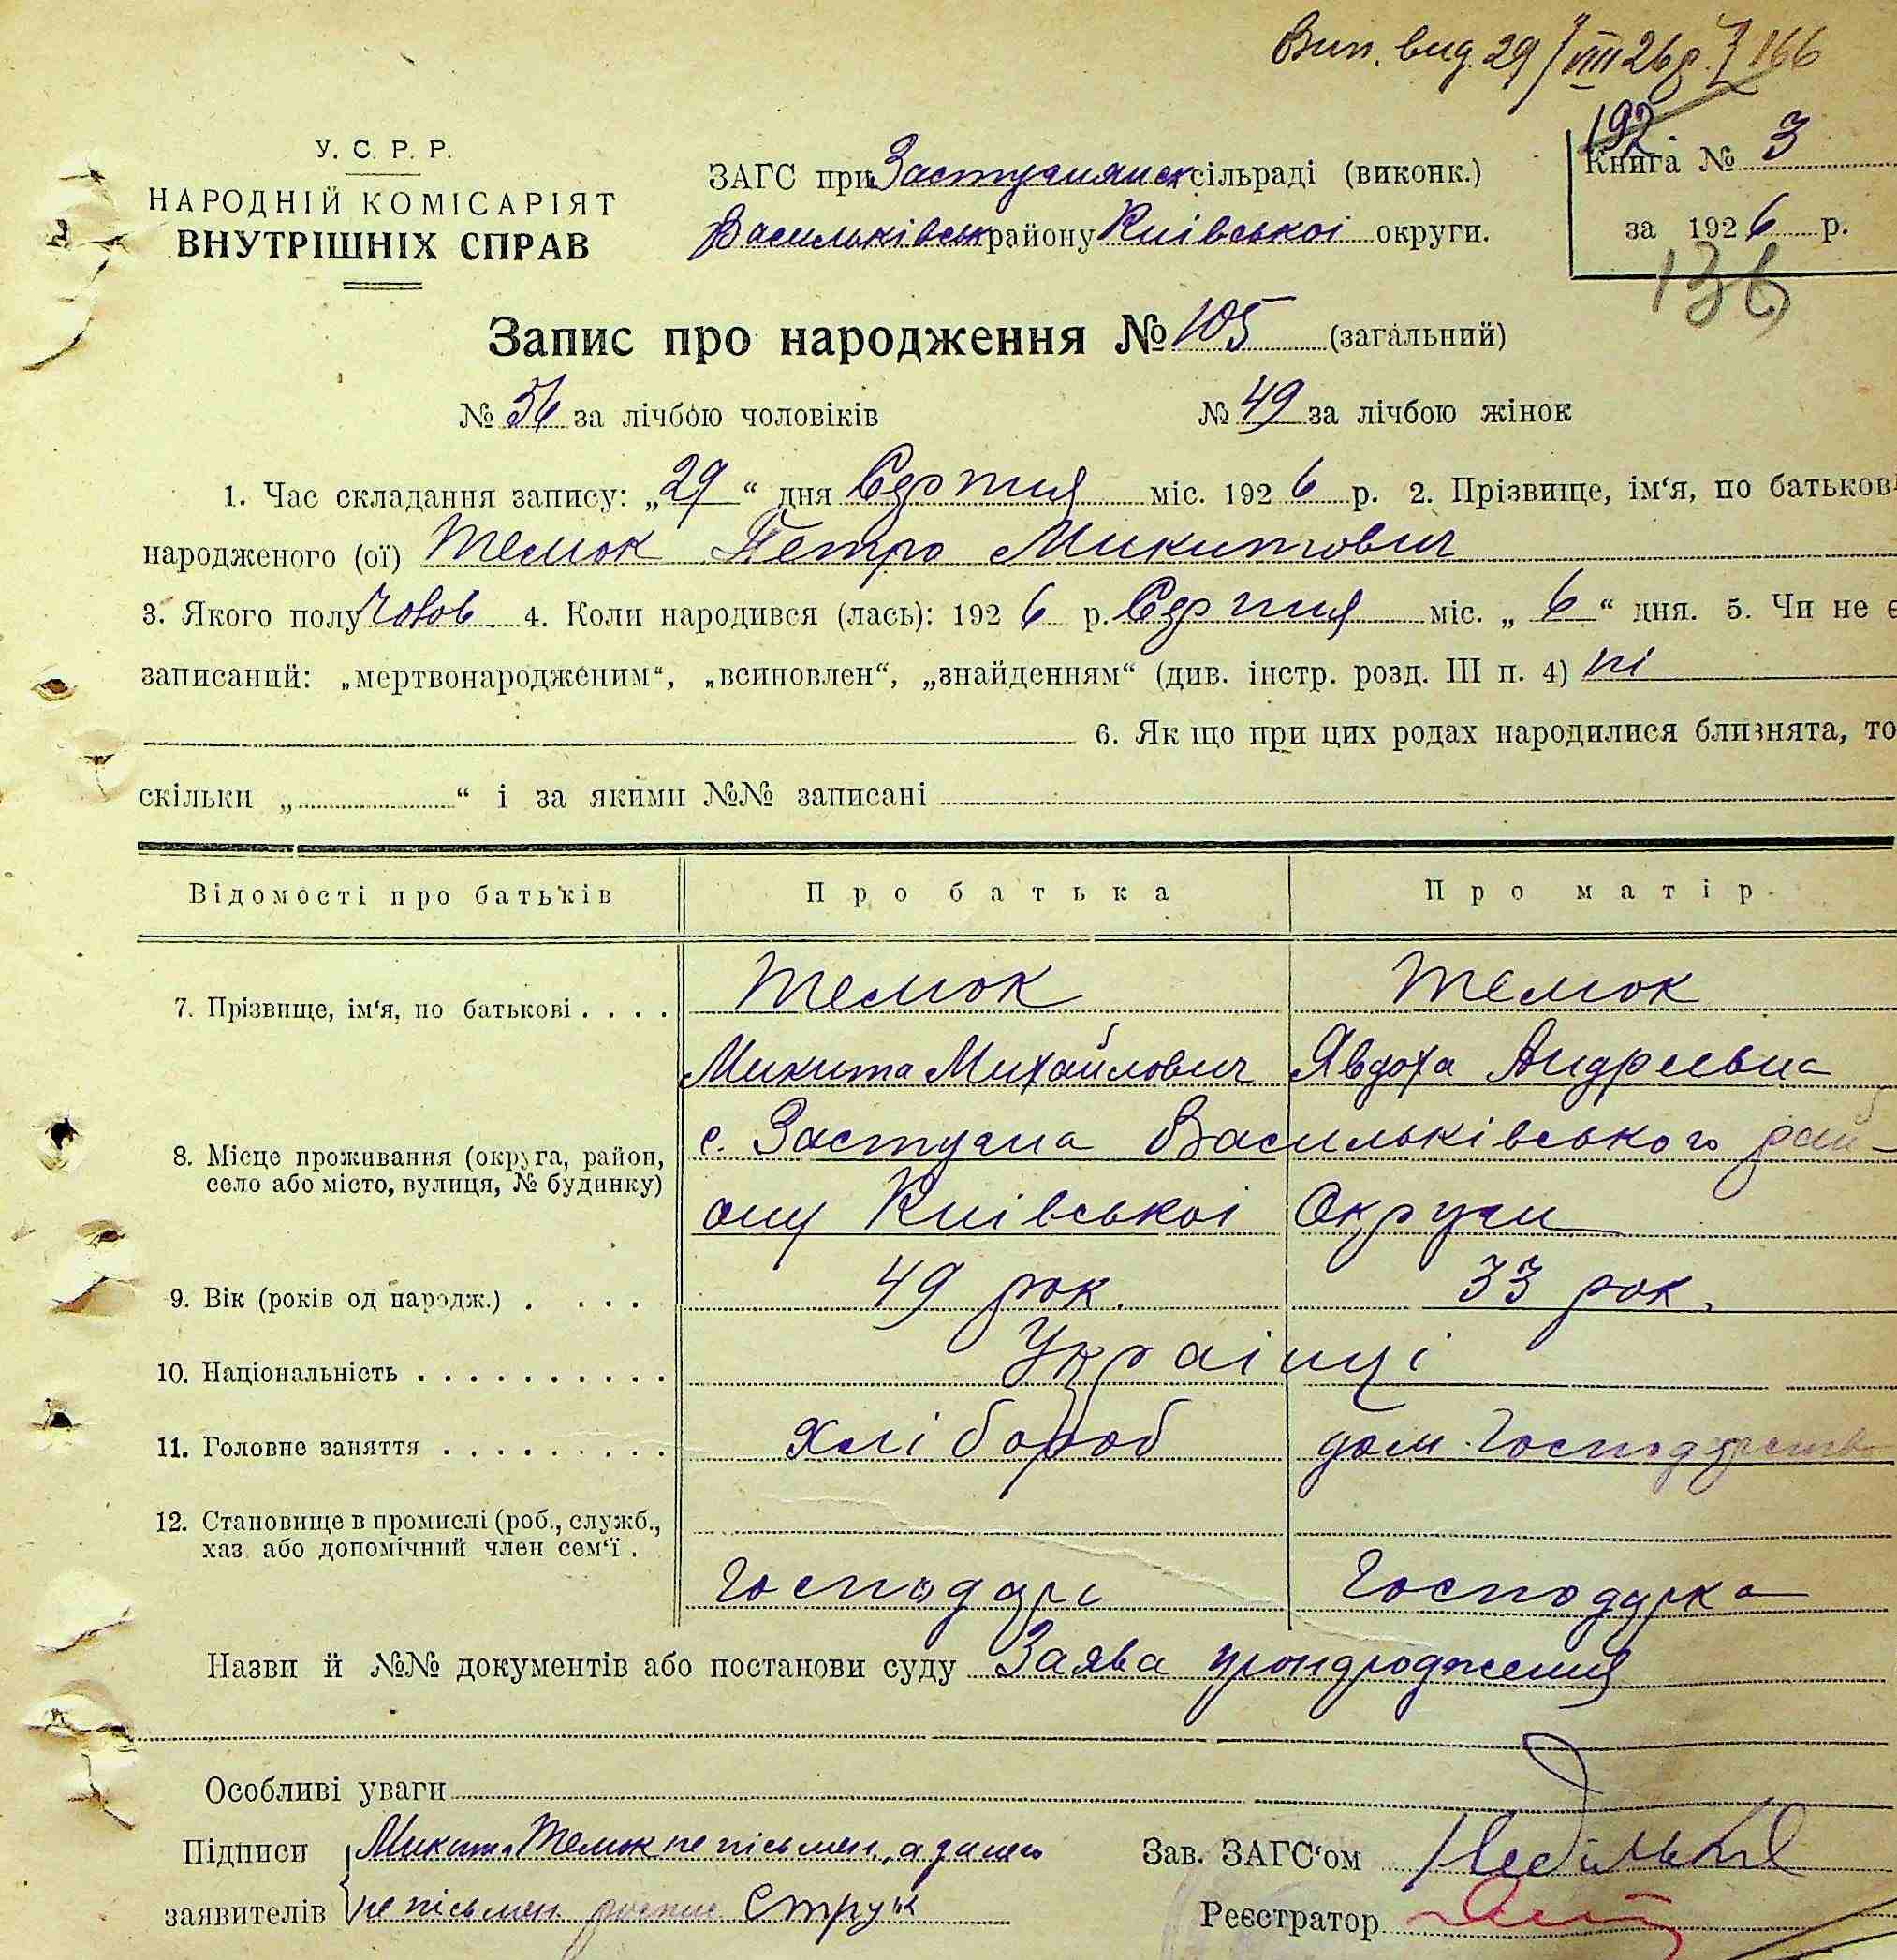 Вип. вид. 29/VIII 26 р. 166
У. С. Р. Р.
НАРОДНІЙ КОМІСАРІЯТ
ВНУТРІШНІХ СПРАВ
ЗАГС при Застугнянск сільраді (виконк.)
Васильківськ району Київської округи.
192
Книга № 3
за 1926 р.
136
Запис про народження № 105 (загальний)
№ 56 за лічбою чоловіків № 49 за лічбою жінок
1. Час складання запису: „29“ дня Серпня міс. 1926 р. 2. Прізвище, ім‘я, по батькові
народженого (ої) Темок Петро Микитович
3. Якого полу Чолов. 4. Коли народився (лась): 1926 р. Серпня міс. „6“ дня. 5. Чи не є
записаний: „мертвонародженим“, „всиновлен“, „знайденням“ (див. інстр. розд. III п. 4) ні
6. Як що при цих родах народилися близнята, то
скільки „ “ і за якими №№ записані
Відомості про батьків Про батька Про матір
7. Прізвище, ім‘я, по батькові . . . . Темок Темок
Микита Михайлович Явдоха Андреевна
8. Місце проживання (округа, район, с. Застугна Васильківського рай-
село або місто, вулиця, № будинку)
ону Київської Округи
9. Вік (років од народж.) . . . . 49 рок. 33 рок.
10. Національність . . . . . . . . . . Українці
11. Головне заняття . . . . . . . . . Хлібороб дом. Господарств
12. Становище в промислі (роб., служб.,
хаз. або допомічний член сем‘ї .
Господарь Господарка
Назви й №№ документів або постанови суду Заява
Особливі уваги
Підписи Микит. Темок не пісьмен, а
заявителів не пісьмен Струк
Зав. ЗАГС‘ом
Реєстратор